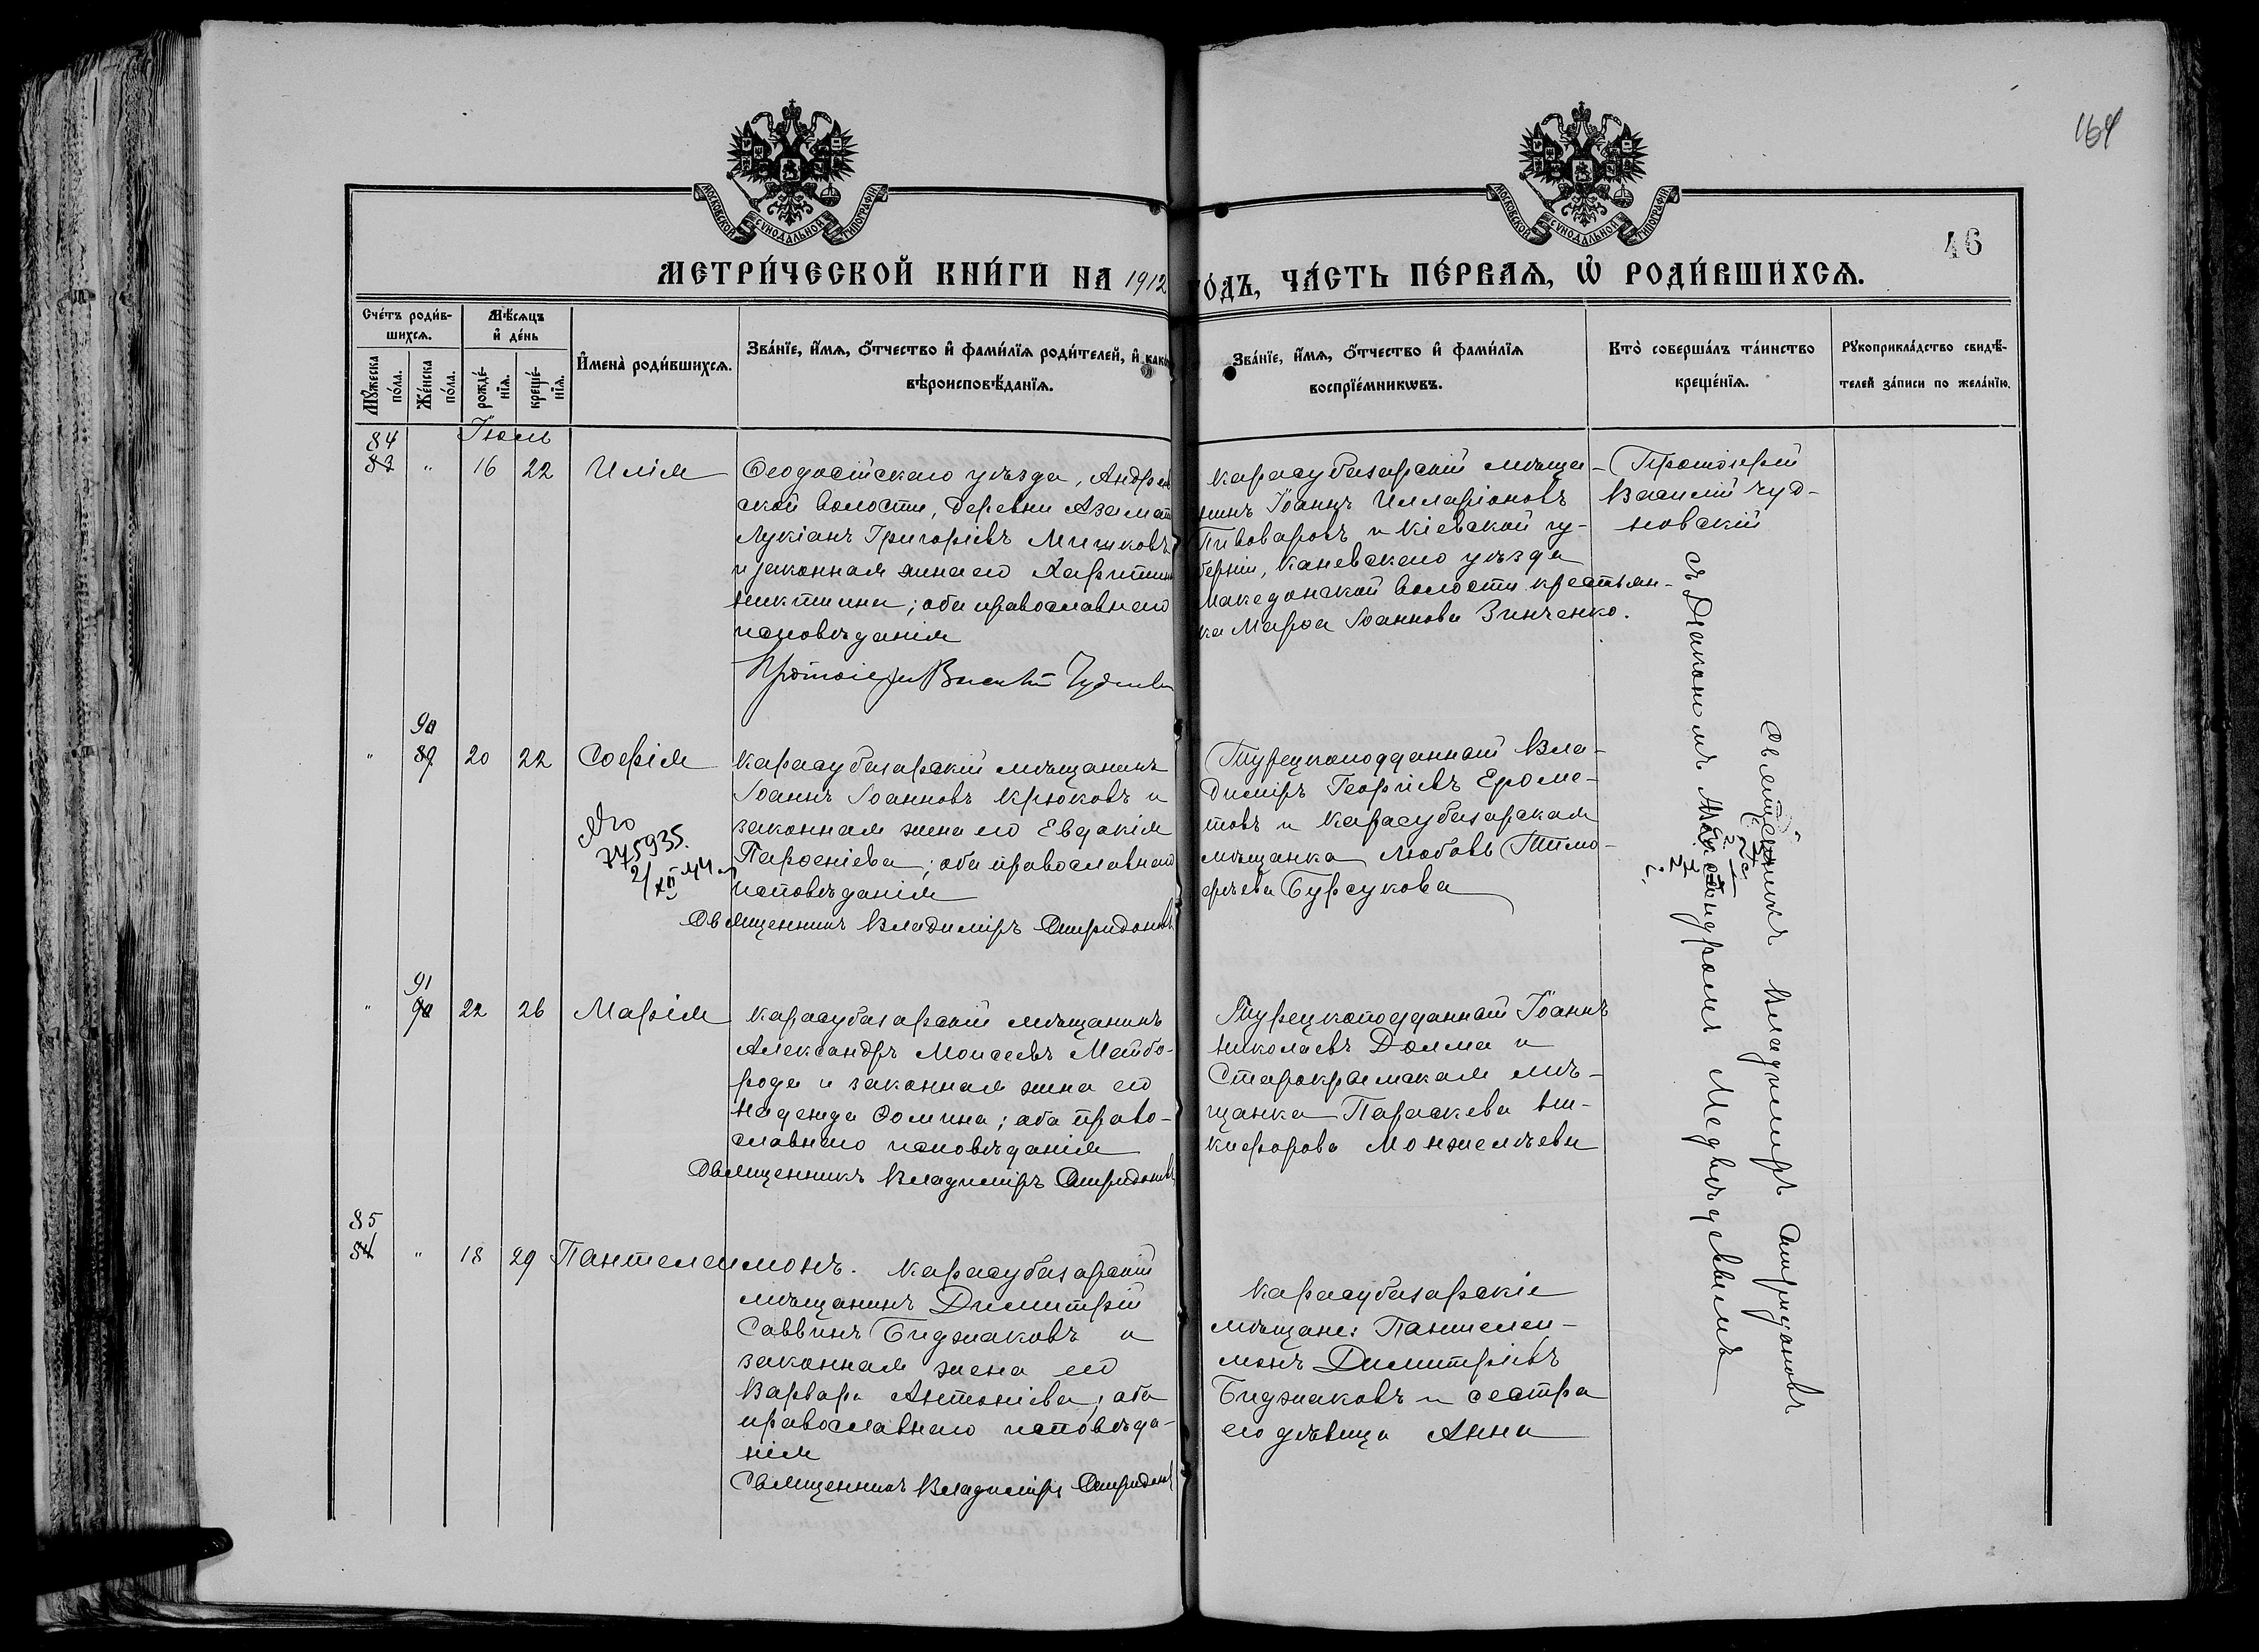 164
46
МОСКОВСКОЙ СѴНОДАЛЬНОЙ ТИПОГРАФІИ
МОСКОВСКОЙ СѴНОДАЛЬНОЙ ТИПОГРАФІИ
МЕТРИ́ЧЕСКОЙ КНИ́ГИ НА 1912 ГО́ДЪ, ЧА́СТЬ ПЕ́РВАѦ, Ѡ҆ РОДИ́ВШИХСѦ.
Сче́тъ роди́в-
шихсѧ.
Мꙋ́жеска по́ла.
Же́нска по́ла.
Мѣ́сѧцъ
и҆ де́нь
рожде́-
нїѧ.
креще́-
нїѧ.
И҆мена̀ роди́вшихсѧ.
Зва́нїе, и҆́мѧ, ѻ҆́тчество и҆ фами́лїѧ роди́телей, и҆ како́
вѣроисповѣ́данїѧ.
Зва́нїе, и҆́мѧ, ѻ҆́тчество и҆ фами́лїѧ
воспрїе́мникѡвъ.
Кто̀ соверша́лъ та́инство
креще́нїѧ.
Рꙋкоприкла́дство свидѣ́-
телей за́писи по жела́нїю.
Іюль
84
83 " 16 22 Илія
Ѳеодосійскаго уѣзда, Андреев
ской волости, деревни Азамат
Лукіанъ Григорьевъ Мишковъ
и законная жена его Харитина
Никитина; оба православнаго
исповѣданія
Протоіерей Василій Чудновск
Карасубазарскій мѣща-
нинъ Іоаннъ Илларіоновъ
Пивоваровъ и Кіевской гу-
берніи, Каневскаго уѣзда
Македонской волости крестьян-
ка Марѳа Іоаннова Зинченко.
Протоіерей
Василій Чуд-
новскій
90
" 89 20 22 Софія
775935.
2/XII 44
Карасубазарскій мѣщанинъ
Іоаннъ Іоанновъ Крюковъ и
законная жена его Евдокія
Парѳеніева; оба православнаго
исповѣданія
Священникъ Владиміръ Спиридоновъ
Турецкоподданный Вла-
диміръ Георгіевъ Ероме-
товъ и Карасубазарская
мѣщанка Любовь Тимо-
ѳѣева Бурсукова
91
" 90 22 26 Марія
Карасубазарскій мѣщанинъ
Александръ Моисеевъ Майбо-
рода и законная жена его
Надежда Ѳомина; оба право-
славнаго исповѣданія
Священникъ Владиміръ Спиридоновъ
Турецкоподданный Іоаннъ
Николаевъ Долма и
Старокрымская мѣ-
щанка Параскева Ни-
кифорова Монжелѣева
85
84 " 18 29 Пантелеимонъ. Карасубазарскій
мѣщанинъ Димитрій
Саввинъ Биджаковъ и
законная жена его
Варвара Антоніева; оба
православнаго исповѣда-
нія
Священникъ Владиміръ Спиридоновъ
Карасубазарскіе
мѣщане: Пантелеи-
монъ Димитріевъ
Биджаковъ и сестра
его дѣвица Анна
Священникъ Владиміръ Спиридоновъ
съ Діакономъ Александромъ Медвѣдевымъ